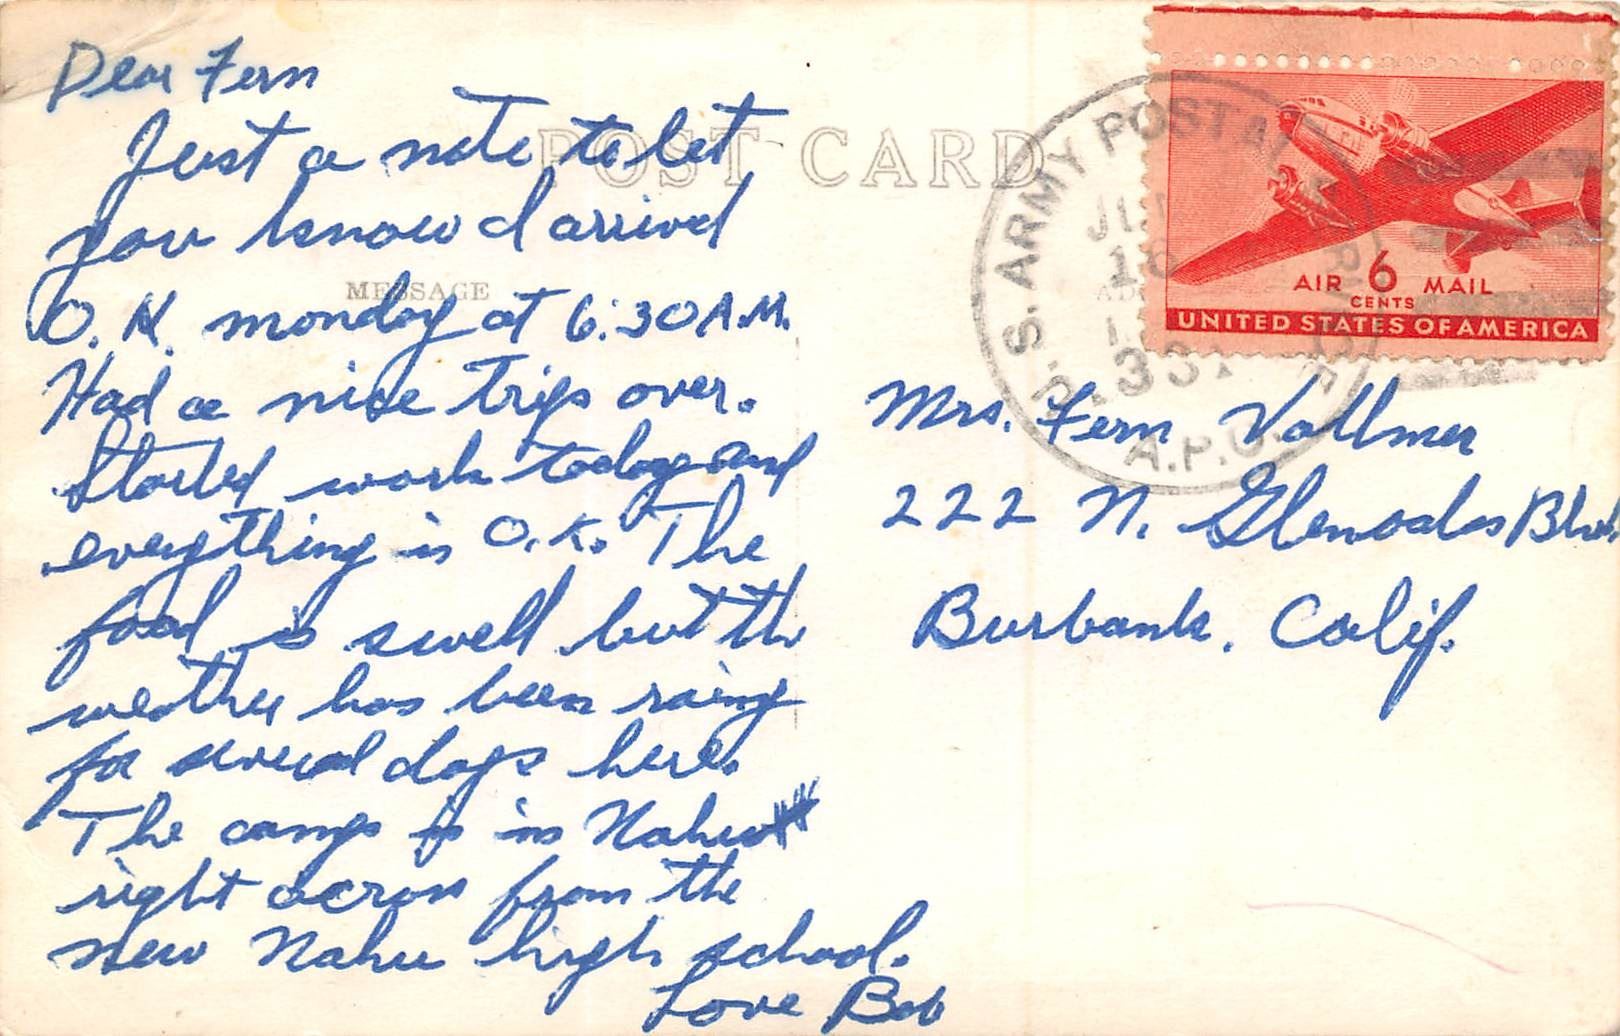 Dear Fern
Just a note to let
you know I arrived
O.K. monday at 6:30 A.M.
Had a nice trip over.
Started work today and
everything is O.K. The
food is swell but the
weather has been raing
for several days here.
The camp is in Nahu
right across from the
new Nahu high school.
Love Bob
POST CARD
MESSAGE
U.S. ARMY POSTAL SERVICE
16
A.P.O.
AIR 6 MAIL
CENTS
UNITED STATES OF AMERICA
Mrs. Fern Vollmer
222 N. Glenoaks Blvd.
Burbank, Calif.